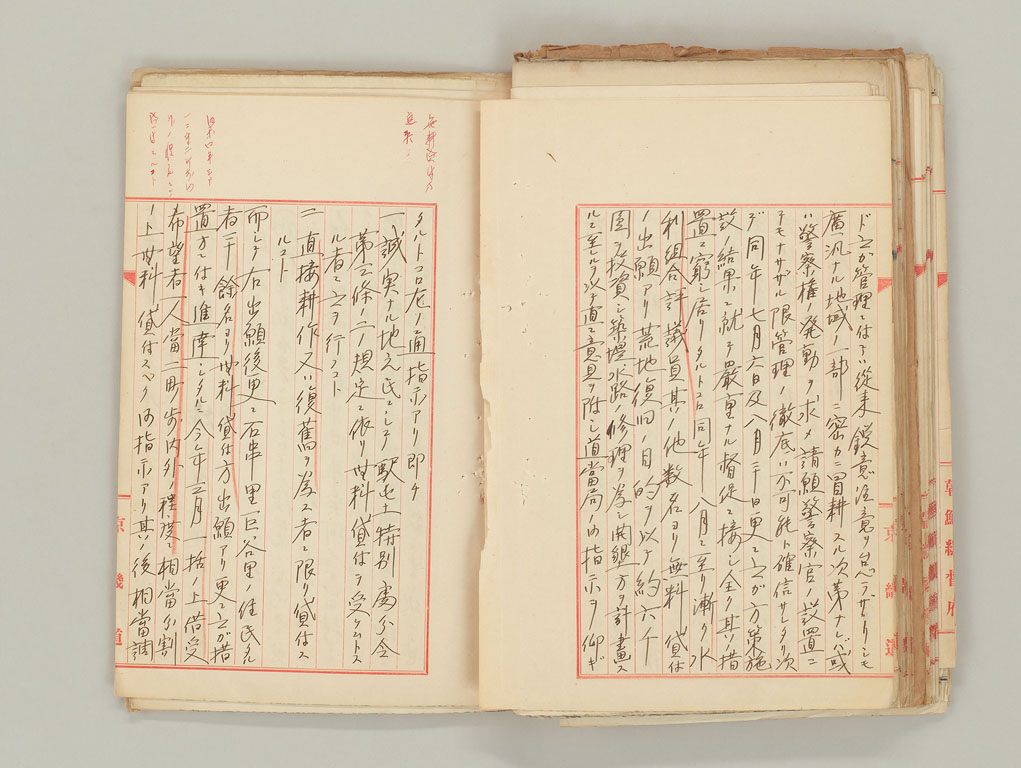 ド之ガ管理ニ付テハ従来鋭意注意ヲ怠ラザリシモ
廣汎ナル地域ノ一部ニ密カニ冒耕スル次第ナレバ或
ハ警察權ノ発動ヲ求メ請願警察官ノ設置ニ
テモナサザル限管理ノ徹底ハ不可能ト確信サレタリ次
デ同年七月六日及八月二十日更ニ之ガ方策施
設ノ結果ニ就テ嚴重ナル督促ニ接シ全ク其ノ措
置ニ窮シ居リタルトコロ同年八月ニ至リ漸ク水
利組合評議員其ノ他数名ヨリ無料貸付
ノ出願アリ荒地復旧ノ目的ヲ以テ約六千
圓ヲ投資シ築堤水路ノ修理ヲ為シ開墾方ヲ計畫ス
ルニ至レルヲ以テ直ニ意見ヲ附シ道當局ノ御指示ヲ仰ギ
京畿道
タルトコロ左ノ通指示アリ即チ
一、誠実ナル地元民ニシテ駅屯土特別處分令
第三條ノ二ノ規定ニ依リ無料貸付ヲ受ケントス
ル者ニ之ヲ行フコト
二、直接耕作又ハ復舊ヲ為ス者ニ限リ貸付ス
ルコト
而シテ右出願後更ニ石串里一巨谷里ノ住民タル
者二千餘名ヨリ無料貸付方出願アリ更ニ之ガ措
置方ニ付キ進達シタルニ今年三月一括ノ上借受
希望者一人當二町歩内外ノ程度ニ相當分割
ノ上無料貸付スベク御指示アリ其ノ後相當調
京畿道
朝鮮總督府